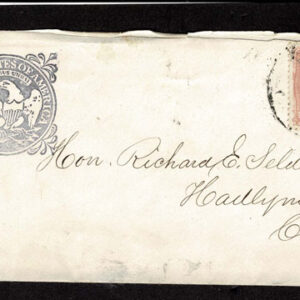 TES OF AMERICA
Hon. Richard E. Seld
Hadlym
C